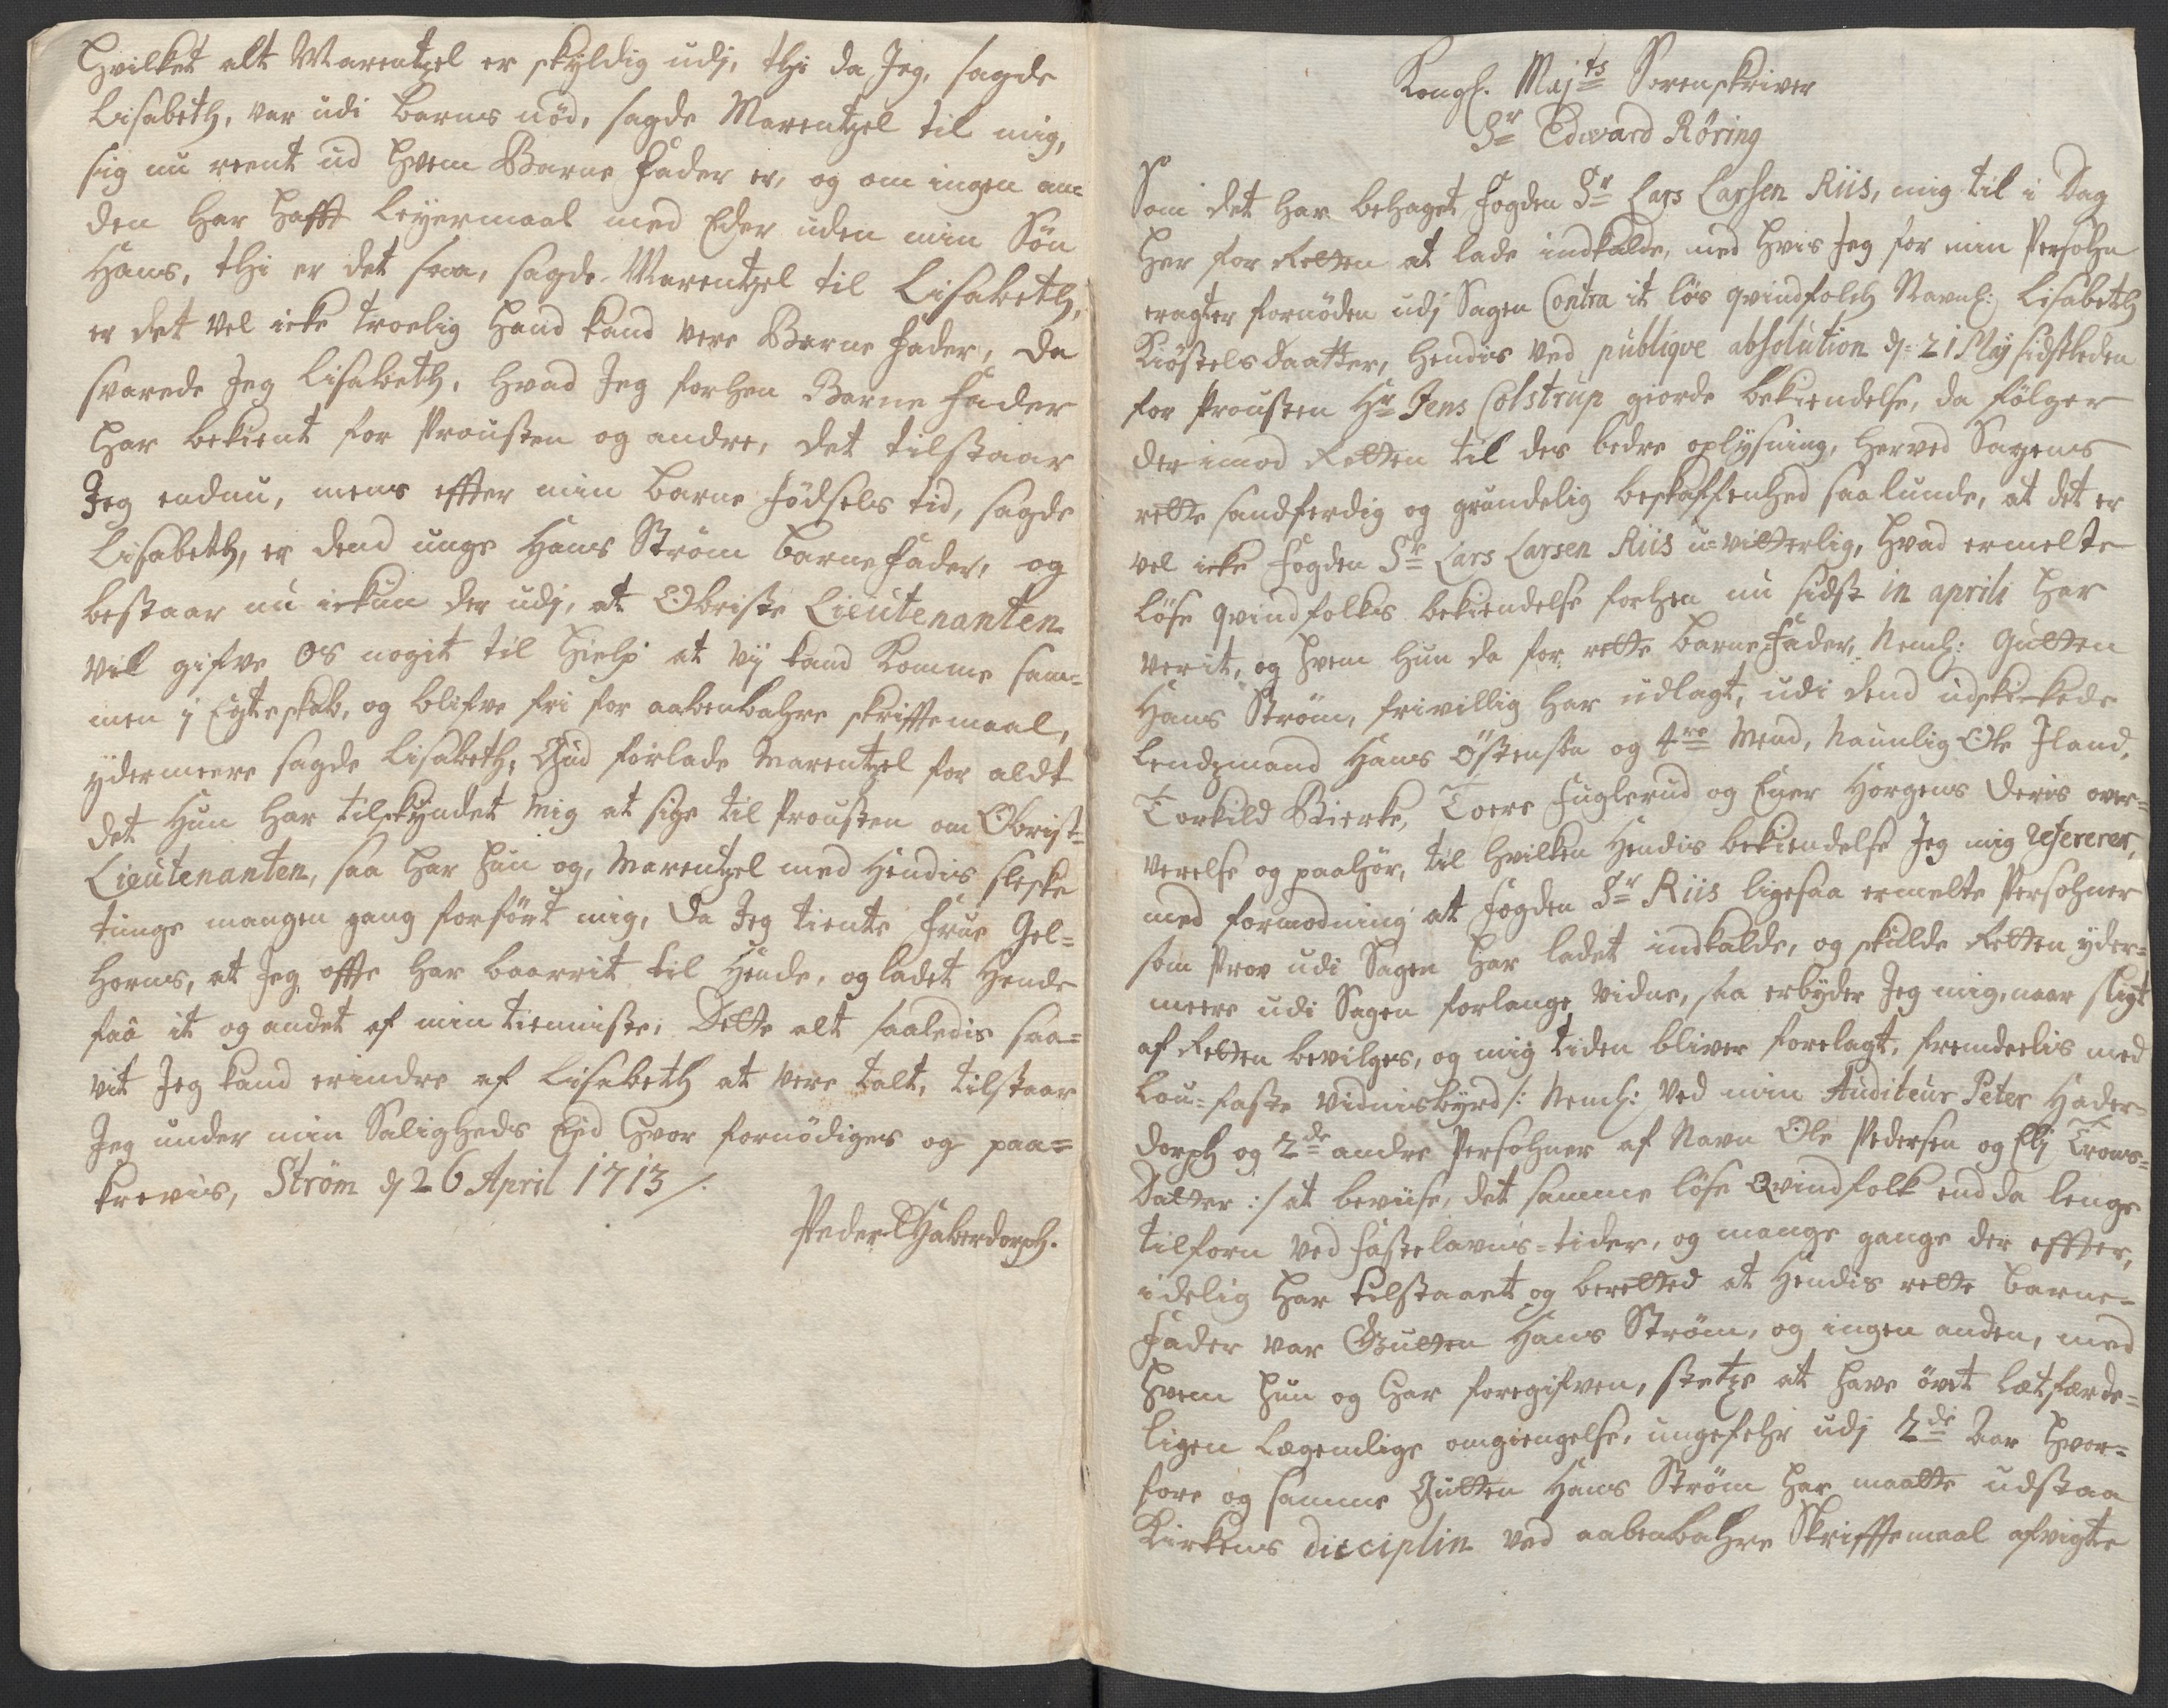 Hvilket alt Marentzel er skyldig udj, thi da Jeg, sagde
Lisabeth, var udi barns nød, sagde Marentzel til mig,
sig nu reent ud hvem Barne fader er, og om ingen an=
den har hafft Leyermaal med Eder uden min Søn
Hans, thi er det saa, sagde Marentzel til Lisabeth,
er det vel icke troelig hand kand vere Barne fader, da
svarede Jeg Lisabeth, hvad Jeg forhen Barne fader
har bekient for Prousten og andre, det tilstaar
Jeg endnu, mens effter min barne fødsels tid, sagde
Lisabeth, er dend unge Hans Strøm barnefader, og
bestaar nu ickun der udj, at Obriste Lieutenanten
vil gifve os nogit til hielp at vij kand komme sam=
men j Egteskab, og blifve fri for aabenbahre skrifftemaal,
ydermeere sagde Lisabeth, Gud forlade Marentzel for aldt
det hun har tilskyndet mig at sige til Prousten om Obrist=
Lieutenanten, saa har hun og, Marentzel med hendis sleske
tunge mangen gang forført mig, da Jeg tiente frue Gel=
horns, at Jeg offte har baarrit til Hende, og ladet Hende
faa it og andet af min tienniste, Dette alt saaledis saa=
vit Jeg kand erindre af Lisabeth at vere talt, tilstaar
Jeg under min Saligheds Eed hvor fornødiges og paa=
krevis, Strøm d 26 April 1713 /.
Peder Haberdorph.
Kongl. Majts Sorenskriver
Sr Edvard Røring
Som det har behaget fogden Sr Lars Larsen Riis, mig til i Dag
her for Retten at lade indkalde, med hvis Jeg for min Persohn
eragter fornøden udj Sagen Contra it løs qvindfolch Navnl: Lisabeth
Kiøstelsdaatter, hendis ved publiqve absolution d: 21 Maj sidstleden
for Prousten Hr Jens Colstrup giorde bekiendelse, da følger
derimod Retten til des bedre oplysning, herved Sagens
rette sandferdig og grundelig beskaffenhed saalunde, at det er
vel icke fogden Sr Lars Larsen Riis u=vitterlig, hvad ermelte
løse qvindfolkes bekiendelse forhen nu sidst in aprili har
verit, og hvem hun da for rette barne=fader, Neml: Gutten
Hans Strøm, frivillig har udlagt, udi dend udskickede
Lendzmand Hans Østensen og 4re Mend, Naunlig Ole Jland,
Torkild Bierke, Toere fuglerud og Euer Horgens deris over=
verelse og paahør, til hvilken hendis bekiendelse Jeg mig refererer,
med formodning at fogden Sr Riis ligesaa ermelte Persohner
som Prov udi Sagen har ladet indkalde, og skulde Retten yder=
meere udi Sagen forlange vidne, saa erbyder Jeg mig, naar sligt
af Retten bevilges, og mig tiden bliver forelagt, fremdeelis med
Lou=faste vidnisbyrd /: Neml: ved min Auditeur Peter Hader=
dorph og 2de andre Persohner af Navn Ole Pedersen og Elj Trons=
Datter :/ at beviise, det samme løse Qvindfolk end da lenge
tilforn ved fastelavns=tider, og mange gange der effter,
idelig har tilstaaet og berettet at hendis rette barne=
fader var Gutten Hans Strøm, og ingen anden, med
hvem hun og har foregifven, stetze at have øvet letfærde=
ligen Legemlige omgiengelse, ungefehr udj 2de Aar hvor=
fore og samme Gutten Hans Strøm har maatte udstaa
Kirkens disciplin ved aabenbahre Skrifftemaal afvigte